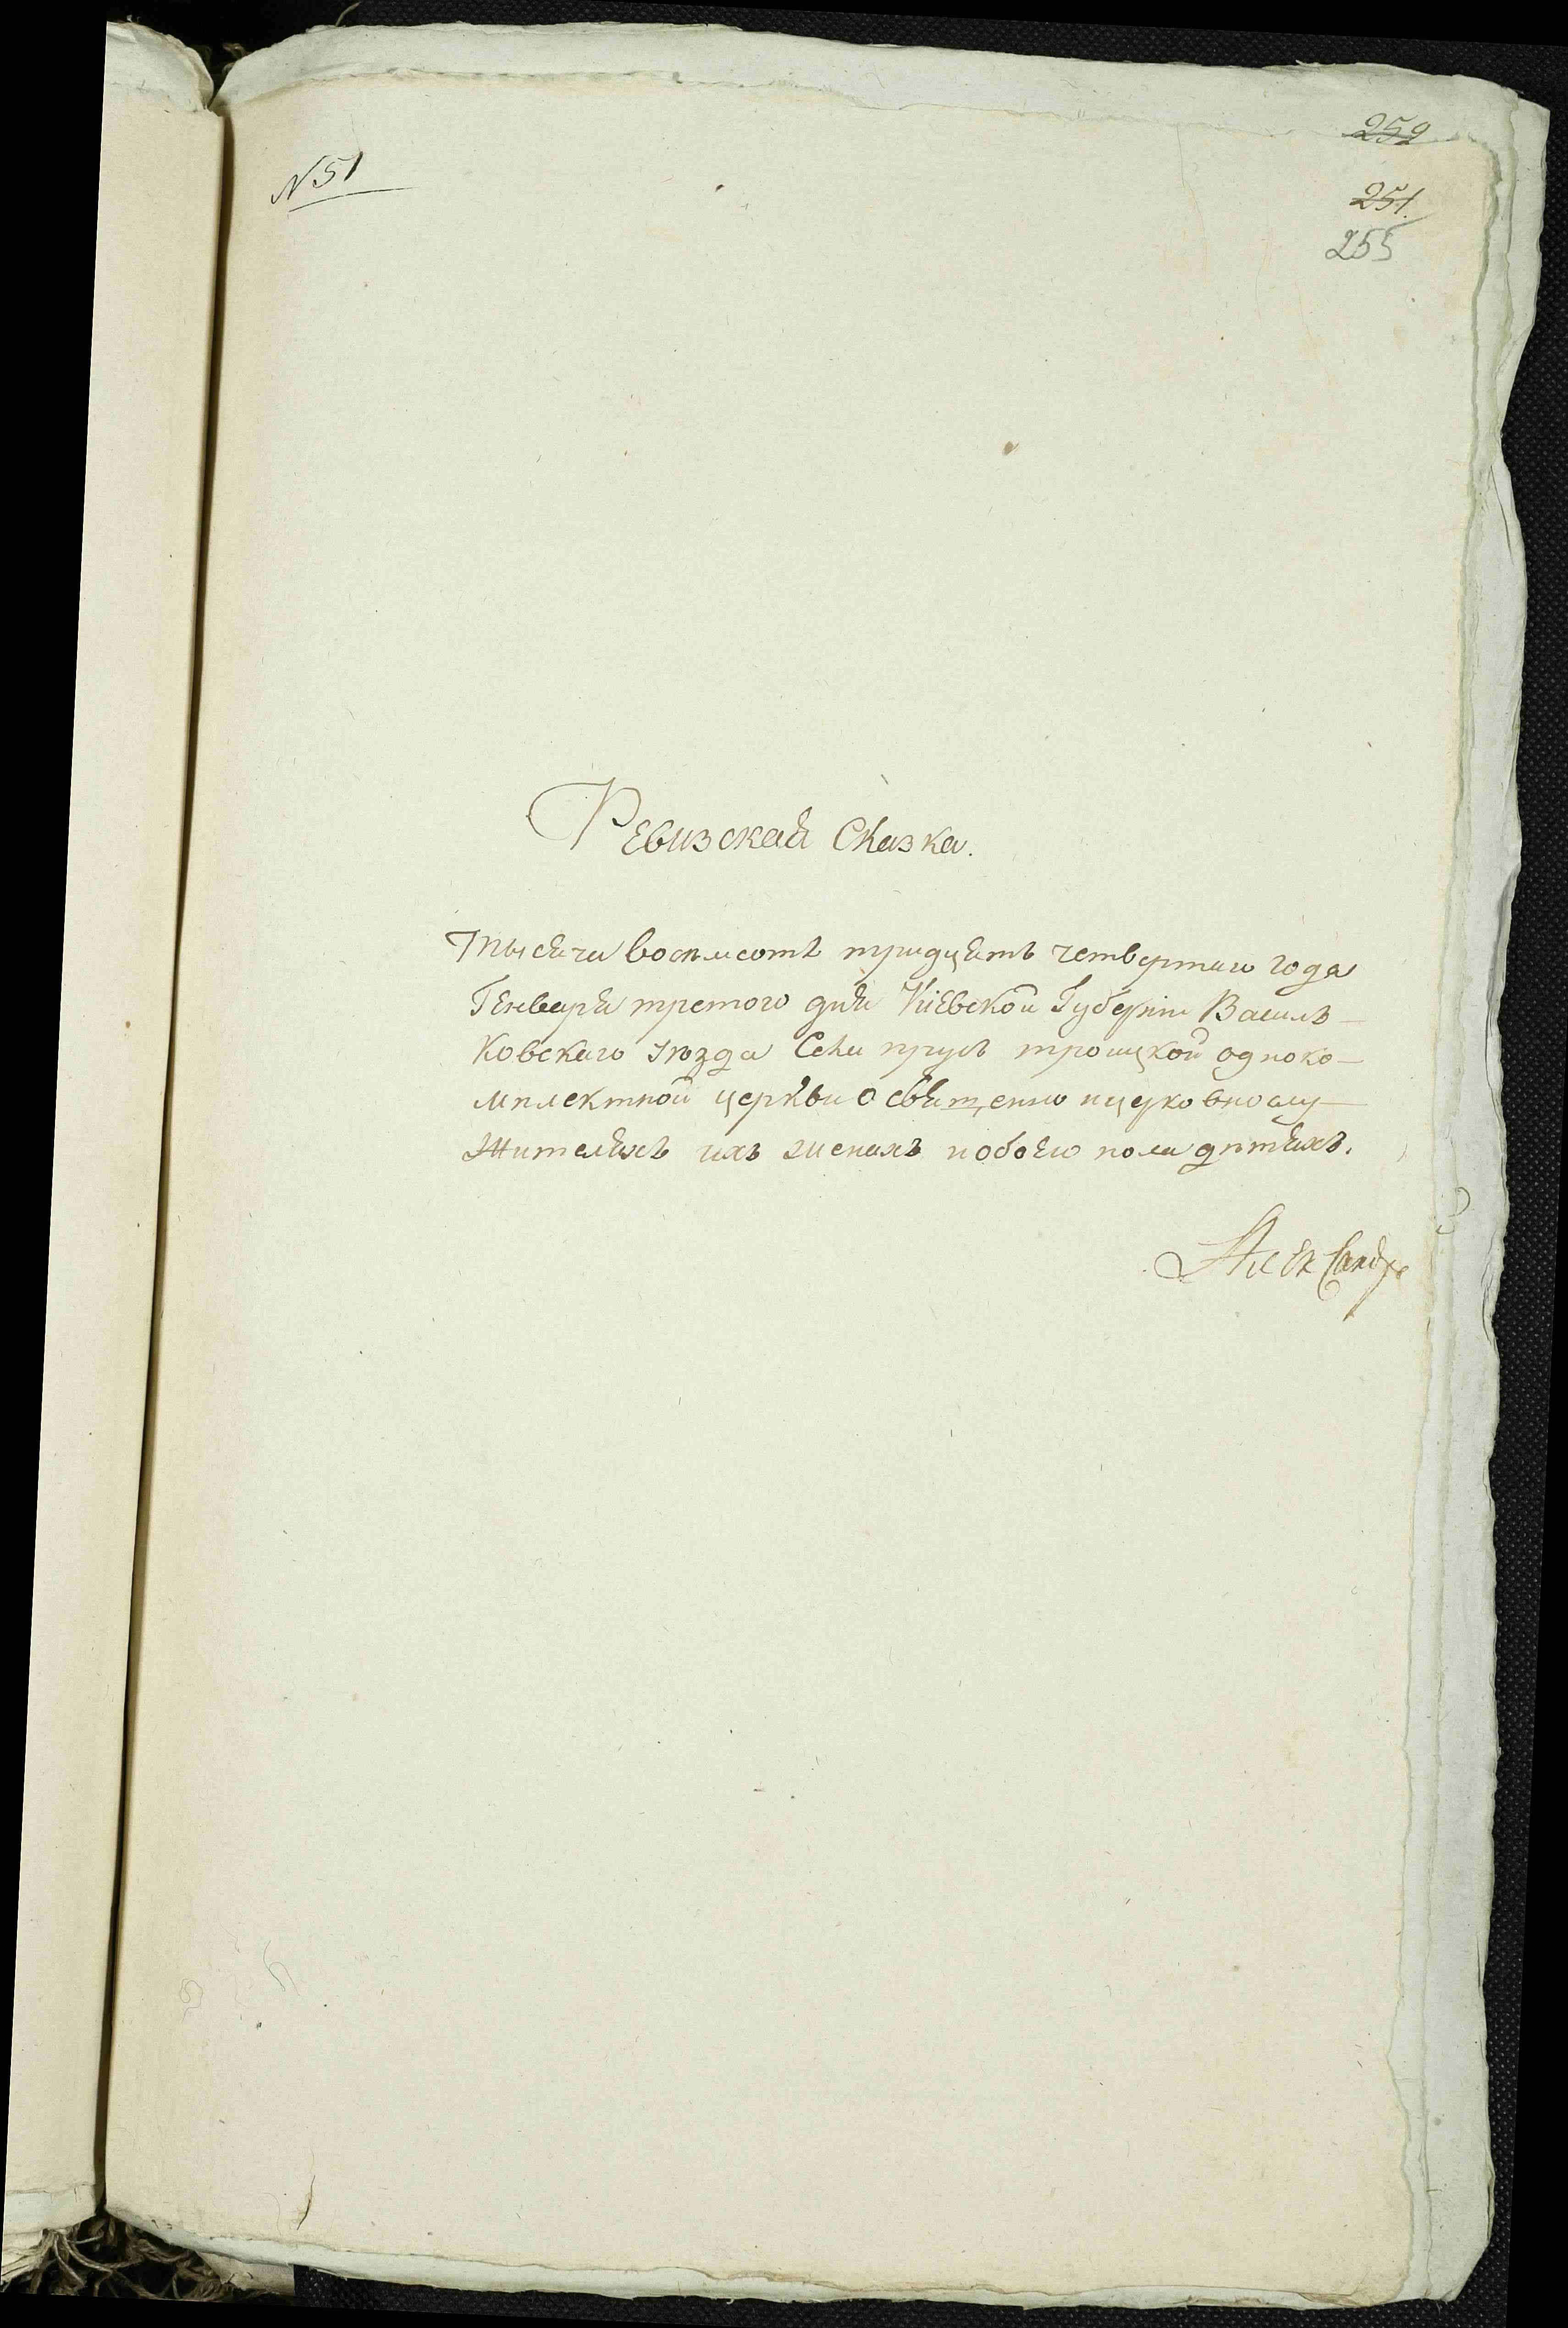 N 51
259
251.
255
Ревизская Сказка.
Тысяча восьмсотъ тридцять четвертаго года
Генваря третого дня Кіевской Губерніи Василь-
ковскаго уѣзда Села прусъ троицкой одноко-
мплектной церкви о священно ицерковнослу-
жителяхъ ихъ женахъ и обоего пола дѣтяхъ.
Александр